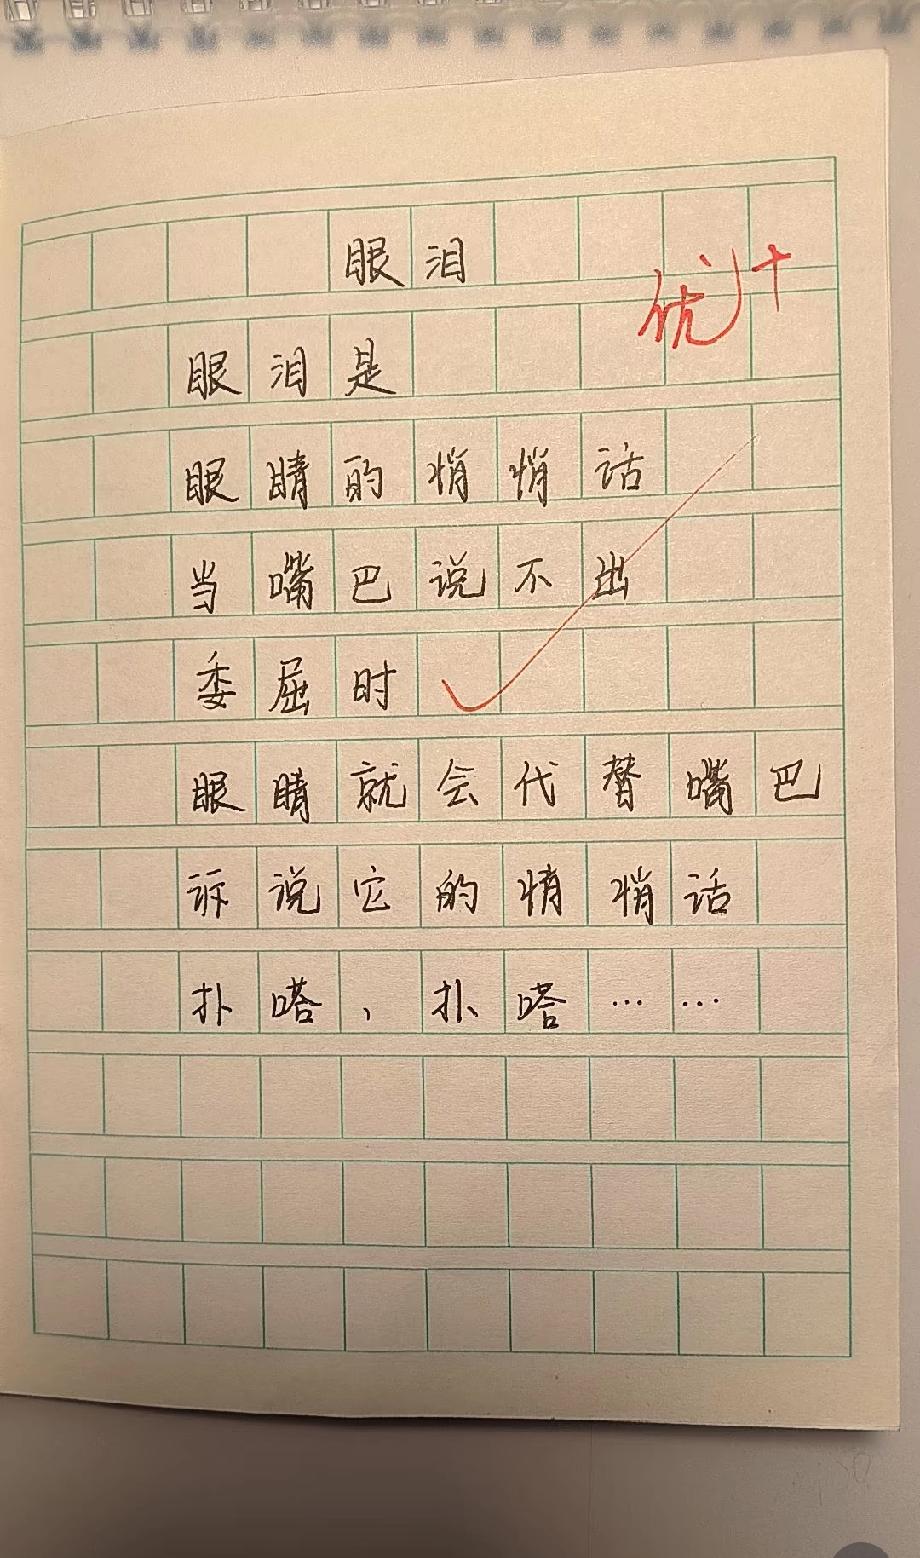 眼泪
优+
眼泪是
眼睛的悄悄话
当嘴巴说不出
委屈时
眼睛就会代替嘴巴
诉说它的悄悄话
扑嗒、扑嗒……